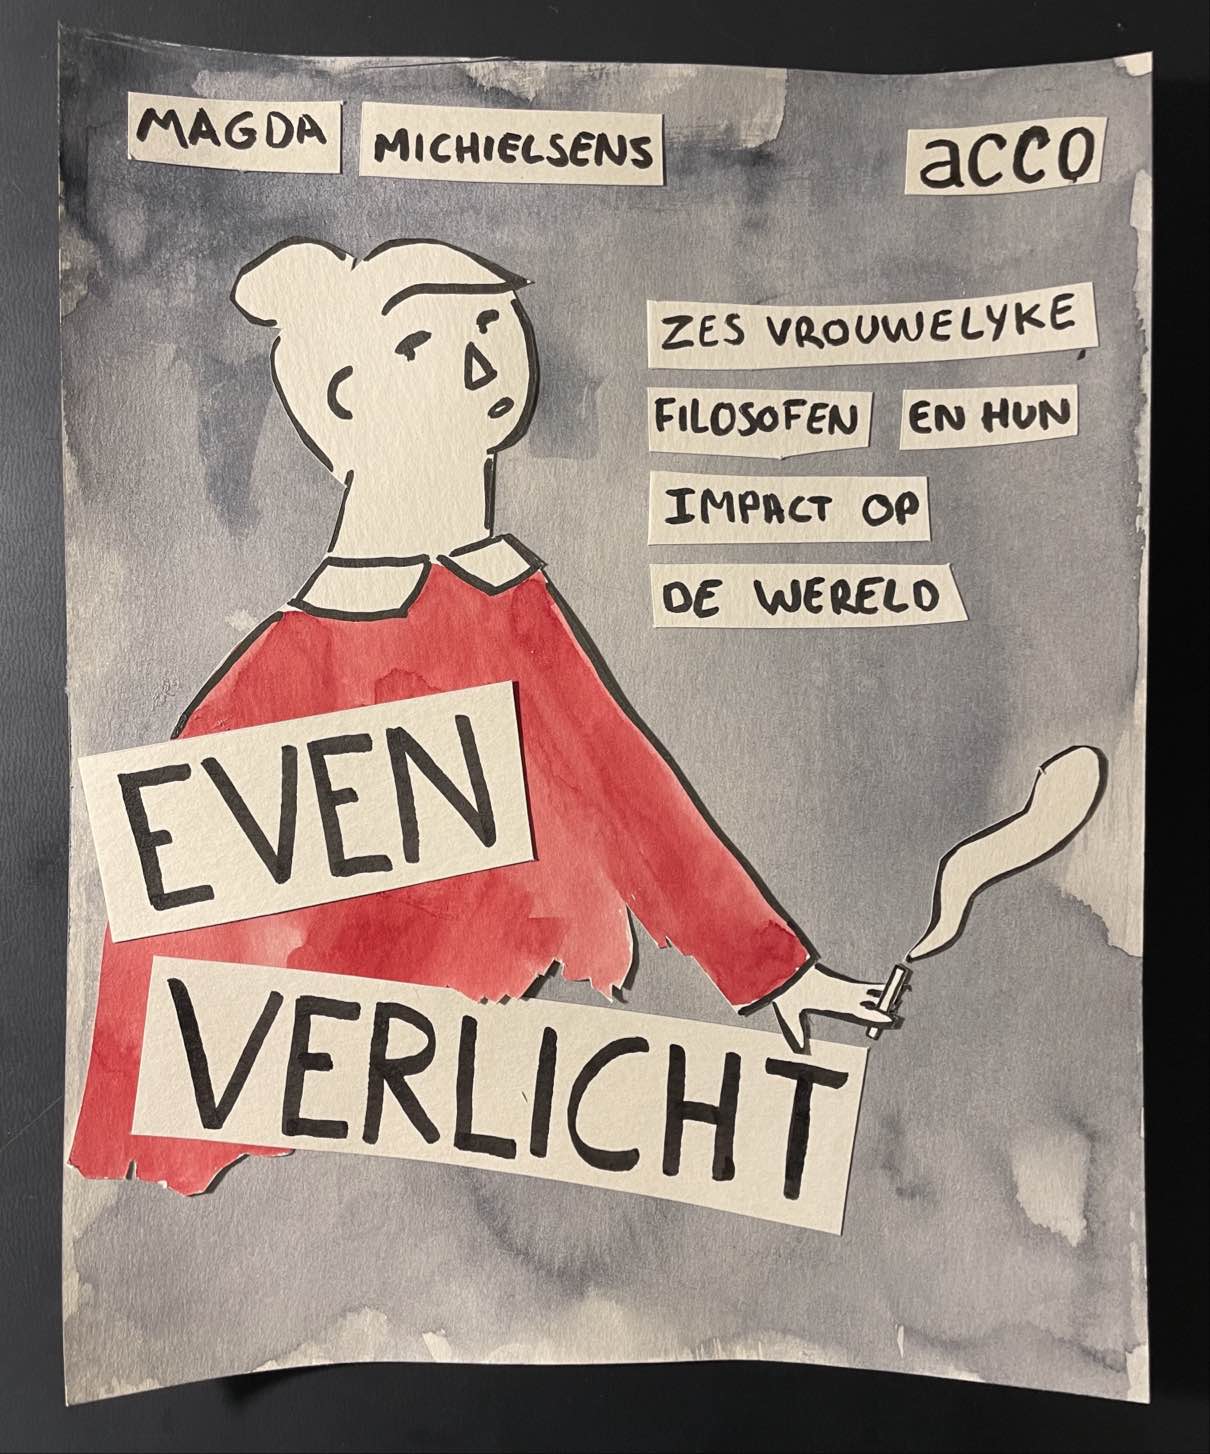 MAGDA MICHIELSENS
acco
ZES VROUWELYKE
FILOSOFEN EN HUN
IMPACT OP
DE WERELD
EVEN
VERLICHT